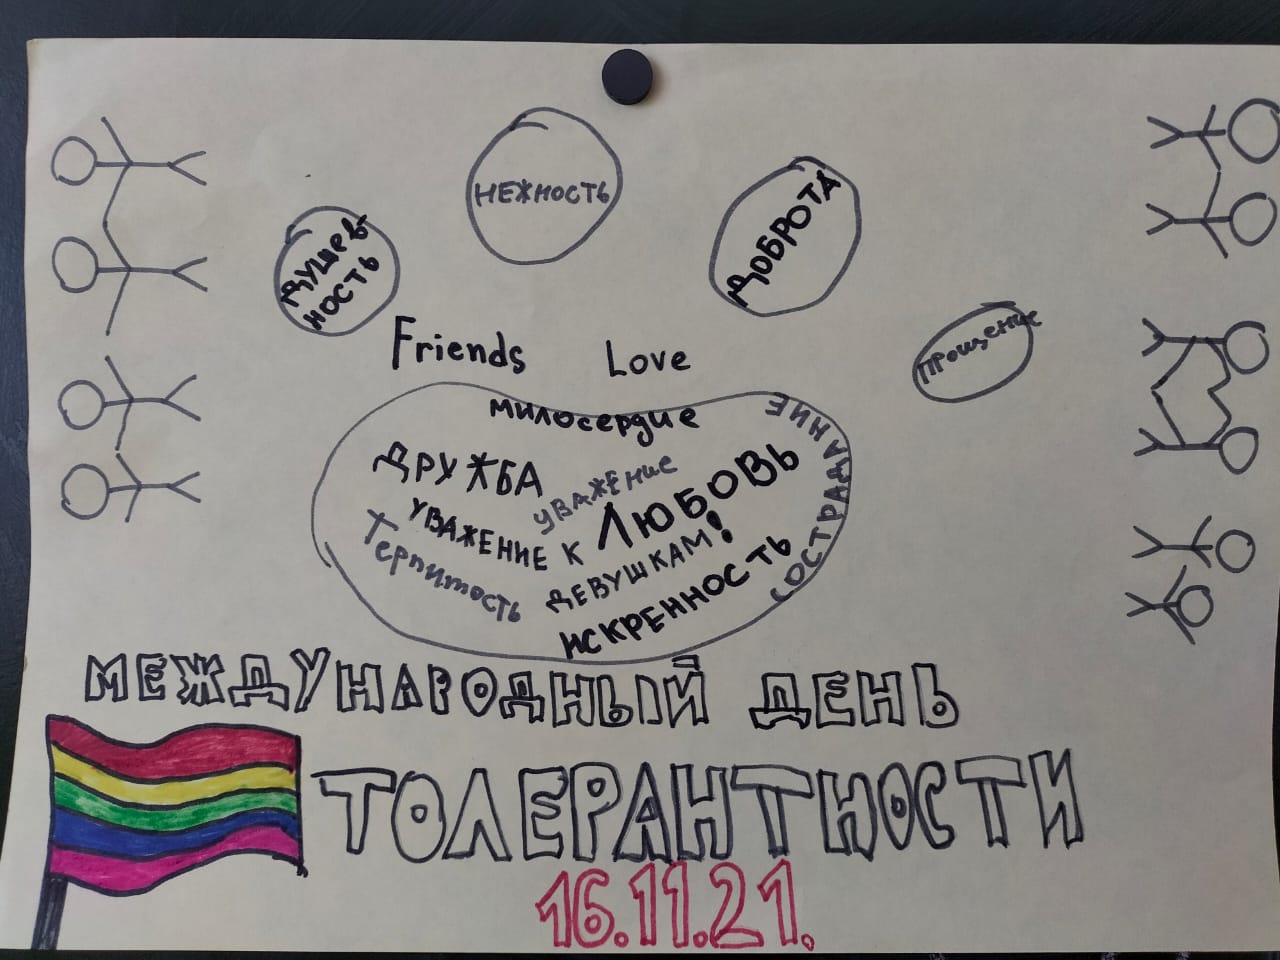 НЕЖНОСТЬ
ДОБРОТА
ДУШЕВ-
НОСТЬ
Прощение
Friends Love
милосердие
СОСТРАДАНИЕ
ДРУЖБА
уважение
ЛЮБОВЬ
УВАЖЕНИЕ К
ДЕВУШКАМ!
Терпимость
ИСКРЕННОСТЬ
МЕЖДУНАРОДНЫЙ ДЕНЬ
ТОЛЕРАНТНОСТИ
16.11.21.